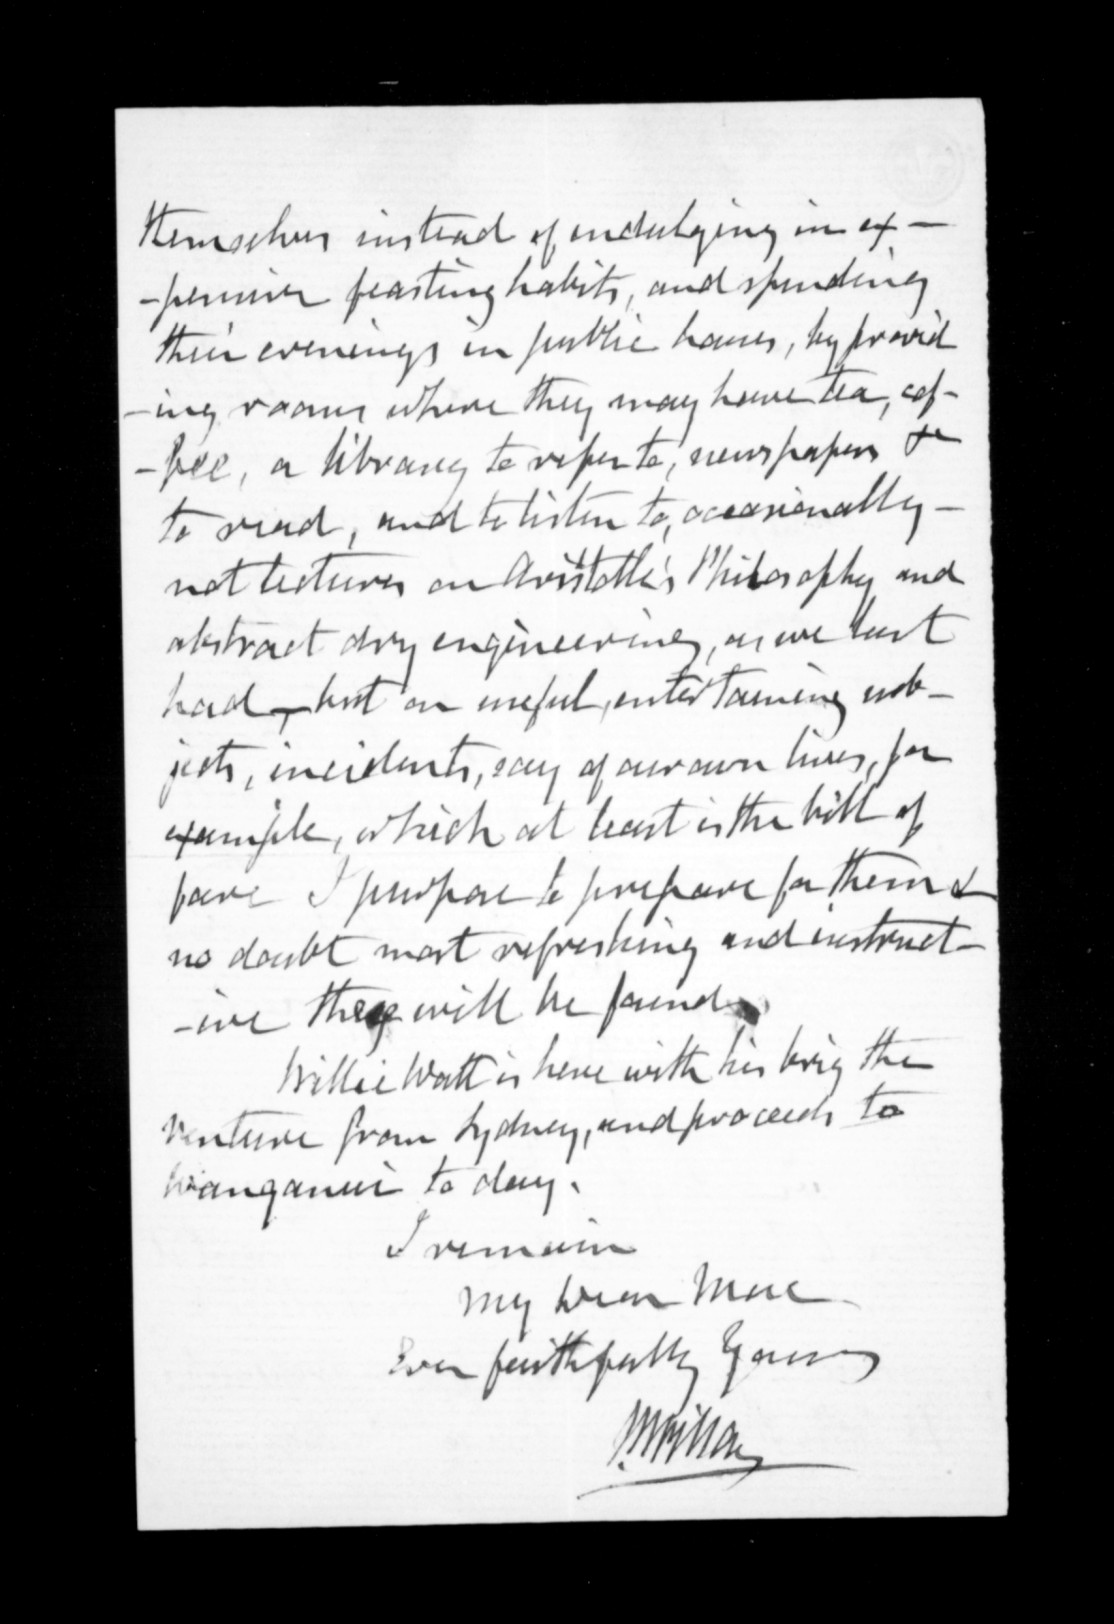 themselves instead of indulging in ex-
-pensive feasting habits, and spending
their evenings in public houses, by provid
-ing rooms where they may have tea, cof-
-fee, a library to refer to, newspapers &c
to read, and to listen to, occasionally -
not lectures on Aristotle's Philosophy and
abstract dry engineering, as we last
had - but on useful, entertaining sub-
jects, incidents, say of our own lives, for
example, which at least is the bill of
fare I purpose to prepare for them &
no doubt most refreshing and instruct-
-ive they will be found.
Willie Watt is here with his brig the
Venture from Sydney, and proceeds to
Wanganui to day.
I remain
My Dear Mac
Ever faithfully Yours